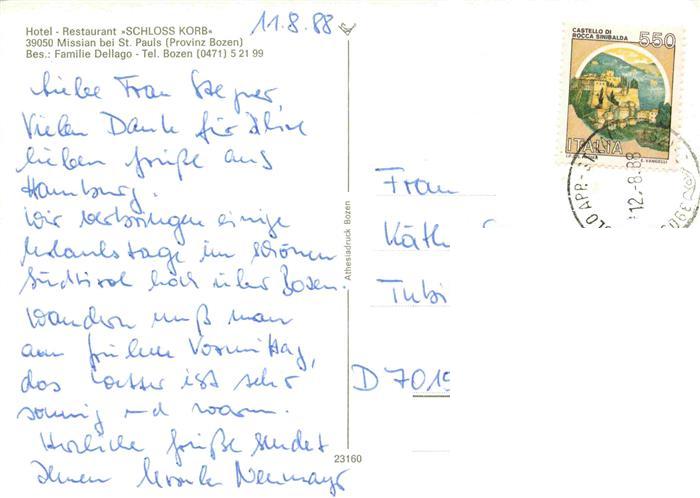 Hotel - Restaurant »SCHLOSS KORB«
39050 Missian bei St. Pauls (Provinz Bozen)
Bes.: Familie Dellago - Tel. Bozen (0471) 5 21 99
11.8.88
CASTELLO DI
ROCCA SINIBALDA
550
ITALIA
E. VANGELLI
12.-8.88
Liebe Frau
Vielen Dank für Ihre
lieben Grüße aus
Hamburg.
Wir verbringen einige
Urlaubstage im schönen
Südtirol hoch über Bozen.
Wandern muß man
am frühen Vormittag,
das Wetter ist sehr
sonnig und warm.
Herzliche Grüße sendet
Ihnen Ursula Neumayr
Athesiadruck Bozen
23160
Frau
Käth
Tubi
D 7019